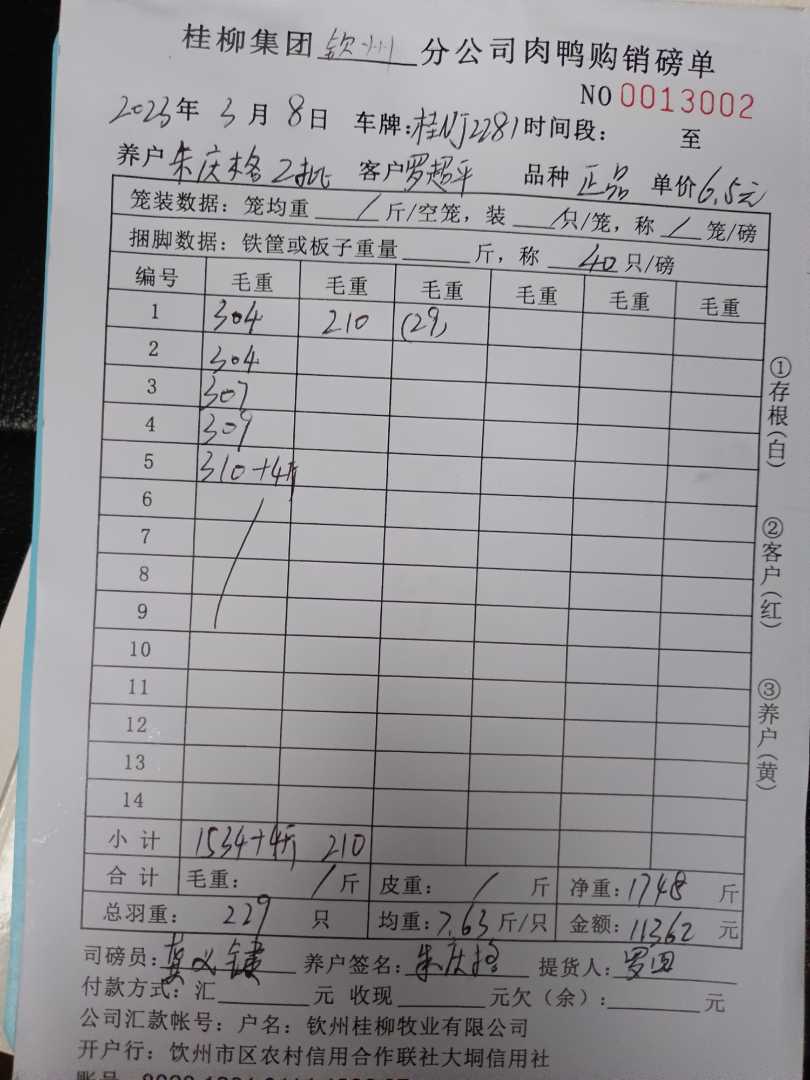 桂柳集团钦州分公司肉鸭购销磅单
NO 0013002
2023年3月8日 车牌:桂NJ2281 时间段: 至
养户朱庆格2批 客户罗超平 品种正品 单价6.5元
笼装数据:笼均重/斤/空笼,装/只/笼,称/笼/磅
捆脚数据:铁筐或板子重量 斤,称40只/磅
编号 毛重 毛重 毛重 毛重 毛重 毛重
1 304 210 (29)
2 304
3 307
4 309
5 310+4斤
6
7
8
9
10
11
12
13
14
小计 1534+4斤 210
合计 毛重:/斤 皮重:/斤 净重:1748斤
总羽重:229只 均重:7.63斤/只 金额:11362元
司磅员: 养户签名:朱庆格 提货人:罗
付款方式:汇 元 收现 元欠(余): 元
公司汇款帐号:户名:钦州桂柳牧业有限公司
开户行:饮州市区农村信用合作联社大垌信用社
①存根(白)
②客户(红)
③养户(黄)